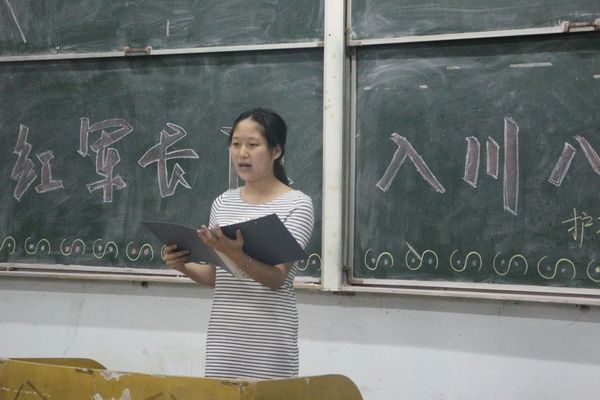 红军长 入川八
护